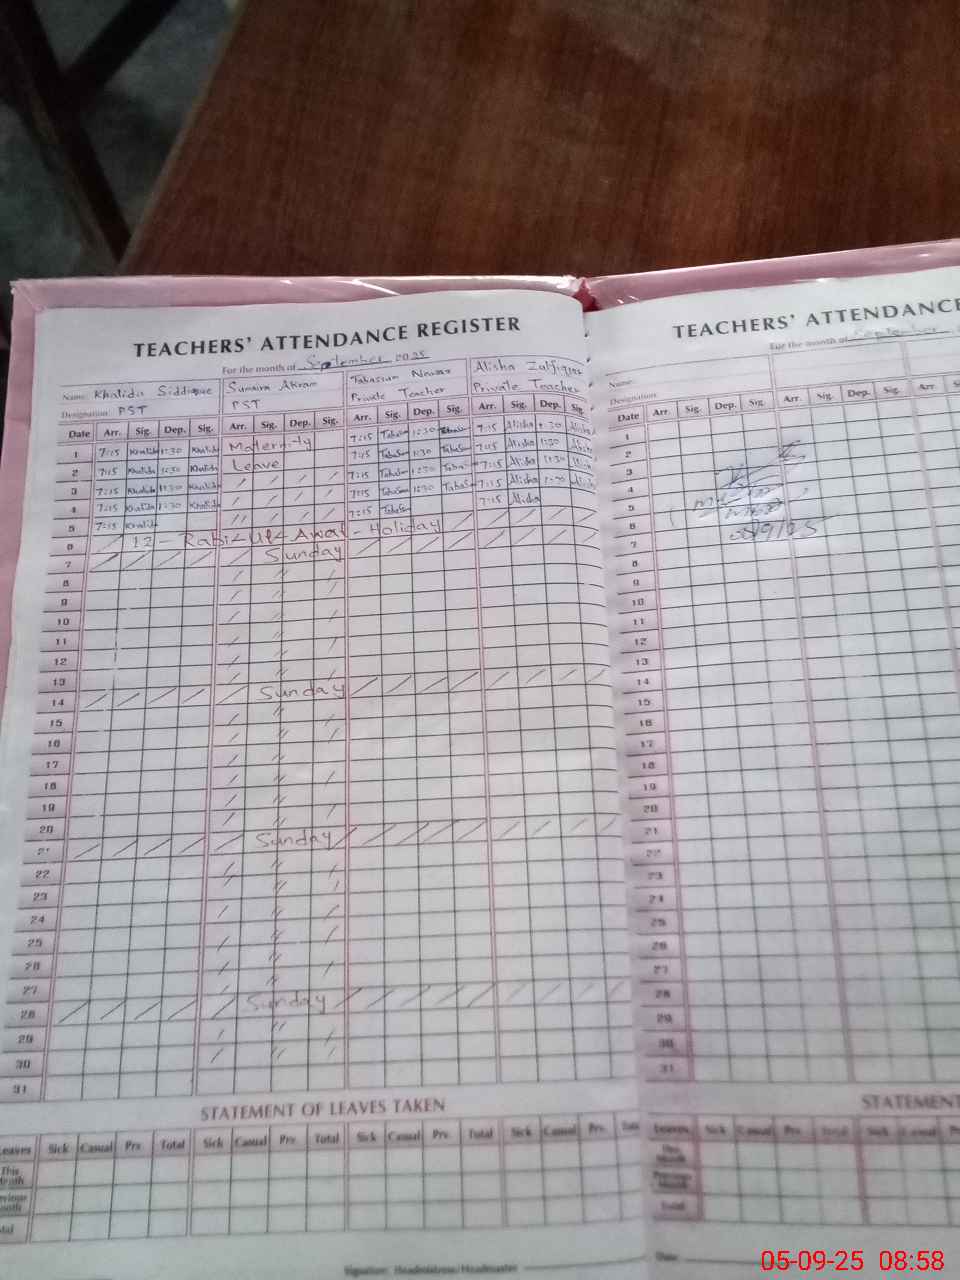 TEACHERS' ATTENDANCE REGISTER
For the month of September 2025
Name: Khalida Siddique Sumaira Akram Tabassum Nawaz Alisha Zulfiqar
Designation: PST PST Private Teacher Private Teacher
Date Arr. Sig. Dep. Sig. Arr. Sig. Dep. Sig. Arr. Sig. Dep. Sig. Arr. Sig. Dep. Sig.
1 7:15 Khalida 1:30 Khalida Maternity 7:15 1:30 7:15 Alisha 1:30 Alisha
2 7:15 Khalida 1:30 Khalida Leave 7:15 1:30 7:15 Alisha 1:30 Alisha
3 7:15 Khalida 1:30 Khalida 7:15 1:30 7:15 Alisha 1:30 Alisha
4 7:15 Khalida 1:30 Khalida 7:15 1:30 7:15 Alisha 1:30 Alisha
5 7:15 Khalida 7:15 7:15 Alisha
6 12 - Rabi-Ul-Awal - Holiday
7 Sunday
8
9
10
11
12
13
14 Sunday
15
16
17
18
19
20
21 Sunday
22
23
24
25
26
27
28 Sunday
29
30
31
STATEMENT OF LEAVES TAKEN
Leaves Sick Casual Prv. Total Sick Casual Prv. Total Sick Casual Prv. Total Sick Casual Prv.
This
Month
Previous
Month
Total
Signature: Headmistress/Headmaster
TEACHERS' ATTENDANCE
For the month of September
Name:
Designation:
Date Arr. Sig. Dep. Sig. Arr. Sig. Dep. Sig. Arr.
1
2
3
4
5
6
7
8
9
10
11
12
13
14
15
16
17
18
19
20
21
22
23
24
25
26
27
28
29
30
31
STATEMENT
Leaves Sick Casual Prv. Total Sick Casual
This
Month
Previous
Month
Total
Date
05-09-25 08:58